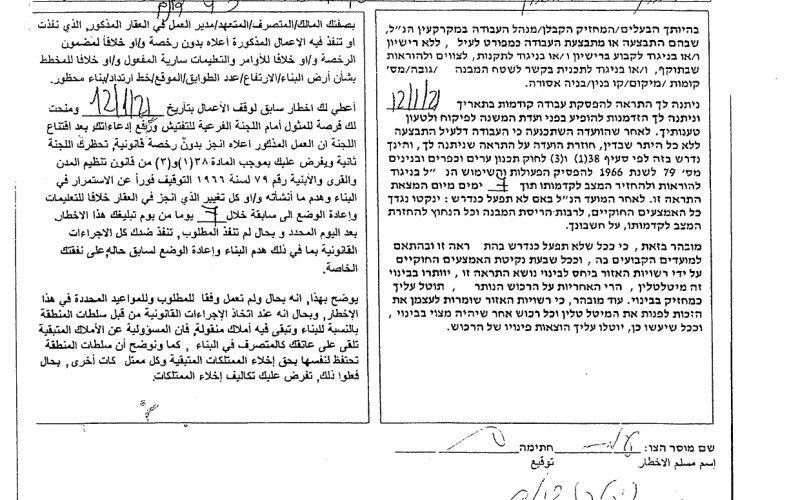 בהיותך הבעלים/המחזיק הקבלן/מנהל העבודה במקרקעין הנ"ל,
שבהם התבצעה או מתבצעת העבודה כמפורט לעיל , ללא רישיון
ו/או בניגוד לקבוע ברישיון ו/או בניגוד לתקנות, לצווים ולהוראות
שבתוקף, ו/או בניגוד לתכנית בקשר לשטח המבנה /גובה/מס'
קומות /מיקום/קו בנין/בניה אסורה.
ניתנה לך התראה להפסקת עבודה קודמות בתאריך 12/1/21
וניתנה לך הזדמנות להופיע בפני ועדת המשנה לפיקוח ולטעון
טענותיך. לאחר שהוועדה השתכנעה כי העבודה דלעיל התבצעה
ללא כל היתר שבדין, חוזרת הועדה על התראה שניתנה לך, והינך
נדרש בזה לפי סעיף 38(1) ו(3) לחוק תכנון ערים וכפרים ובנינים
מס' 79 לשנת 1966 להפסיק הפעולות והשימוש הנ"ל בניגוד
להוראות ולהחזיר המצב לקדמותו תוך 7 ימים מיום המצאת
התראה זו. לאחר המועד הנ"ל באם לא תפעל כנדרש : ינקטו נגדך
כל האמצעים החוקיים, לרבות הריסת המבנה וכל הנחוץ להחזרת
המצב לקדמותו, על חשבונך.
מובהר בזאת, כי ככל שלא תפעל כנדרש בהתראה זו ובהתאם
למועדים הקבועים בה , וככל שבעת נקיטת האמצעים החוקיים
על ידי רשויות האזור ביחס לבינוי נושא התראה זו , יוותרו בבינוי
זה מיטלטלין , הרי האחריות על הרכוש הנותר , תוטל עליך
כמחזיק בבינוי. עוד מובהר, כי רשויות האזור שומרות לעצמן את
הזכות לפנות את המיטלטלין וכל רכוש אחר שיהיה מצוי בבינוי ,
וככל שיעשו כן, יוטלו עליך הוצאות פינויו של הרכוש.
بصفتك المالك/المتصرف/المتعهد/مدير العمل في العقار المذكور, الذي نفذت
او تنفذ فيه الاعمال المذكورة أعلاه بدون رخصة و/او خلافاً لمضمون
الرخصة و/او خلافا للأوامر والتعليمات سارية المفعول و/او خلافا للمخطط
بشأن أرض البناء/الارتفاع/عدد الطوابق/الموقع/خط ارتداد/بناء محظور.
أعطي لك اخطار سابق لوقف الأعمال بتأريخ 12/1/21 ومنحت
لك فرصة للمثول أمام اللجنة الفرعية للتفتيش ورفع إدعاءاتك بعد اقتناع
اللجنة ان العمل المذكور اعلاه انجز بدون رخصة قانونية, تحظرك اللجنة
ثانية ويفرض عليك بموجب المادة ٣٨(١)و(٣) من قانون تنظيم المدن
والقرى والأبنية رقم ٧٩ لسنة ١٩٦٦ التوقيف فوراً عن الاستمرار في
البناء وهدم ما أنشأته و/او كل تغيير الذي انجز في العقار خلافا للتعليمات
وإعادة الوضع الى سابقة خلال 7 يوما من يوم تبليغك هذا الاخطار
بعد اليوم المحدد و بحال لم تنفذ المطلوب, تنفذ ضدك كل الاجراءات
القانونية بما في ذلك هدم البناء وإعادة الوضع لسابق حاله, على نفقتك
الخاصة.
يوضح بهذا, انه بحال ولم تعمل وفقا للمطلوب وللمواعيد المحددة في هذا
الإخطار, وبحال انه عند اتخاذ الإجراءات القانونية من قبل سلطات المنطقة
بالنسبة للبناء وتبقى فيه أملاك منقولة, فان المسؤولية عن الأملاك المتبقية
تلقى على عاتقك كالمتصرف في البناء , كما ونوضح أن سلطات المنطقة
تحتفظ لنفسها بحق إخلاء الممتلكات المتبقية وكل ممتلكات أخرى, بحال
فعلوا ذلك, تفرض عليك تكاليف إخلاء الممتلكات.
שם מוסר הצו: חתימה
إسم مسلم الاخطار توقيع